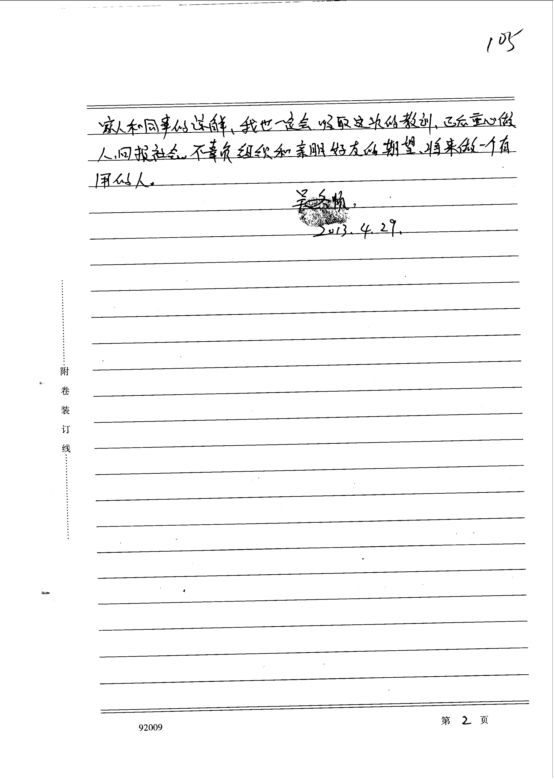 105
家人和同事的谅解,我也一定会吸取这次的教训,已后重心做
人,回报社会。不辜负组织和亲朋好友的期望,将来做一个有
用的人。
2013.4.29.
附卷装订线
第 2 页
92009